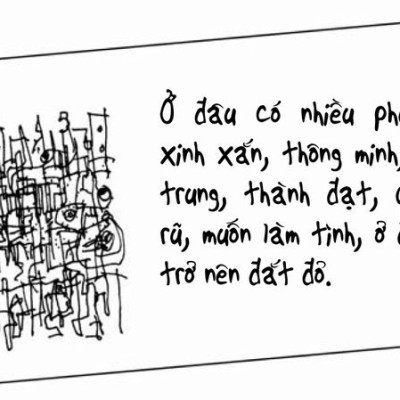 Ở đâu có nhiều
xinh xắn, thông minh,
trung, thành đạt,
rũ, muốn làm tình, ở
trở nên đắt đỏ.